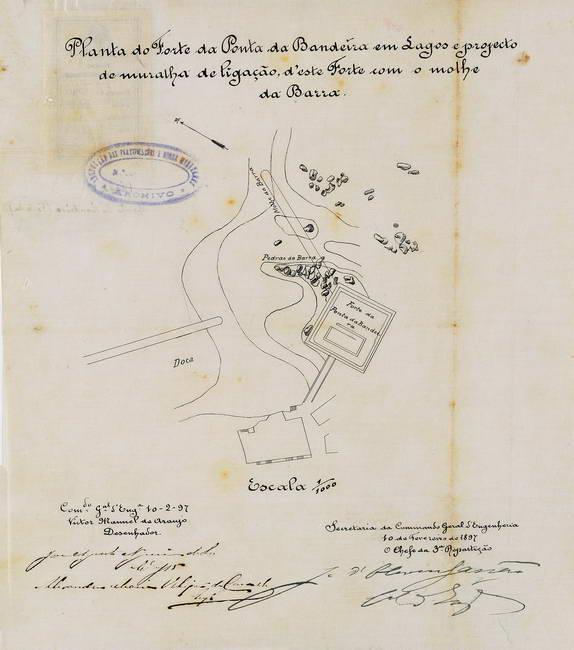 Planta do Forte da Ponta da Bandeira em Lagos e projecto
de muralha de ligação, d'este Forte com o molhe
da Barra.
ARCHIVO
Molhe da Barra
Pedras da Barra
Forte da
Ponta da Bandei
ra
Doca
Escala 1/1000
Comdo Gal d'Engª 10-2-97
Victor Manuel de Araujo
Desenhador.
Secretaria do Commando Geral d'Engenheria
10 de Fevereiro de 1897
O Chefe da 3ª Repartição